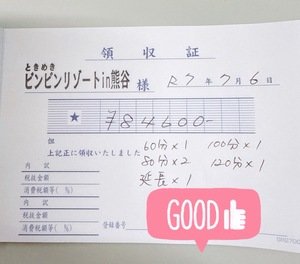 領収証
ときめき
ビンビンリゾートin熊谷 様 R7年7月6日
★ ¥84600-
但
上記正に領収いたしました
60分×1 100分×1
80分×2 120分×1
延長×1
内訳
税抜金額
消費税額等(%)
内訳
税抜金額
消費税額等(%)
登録番号
GOOD